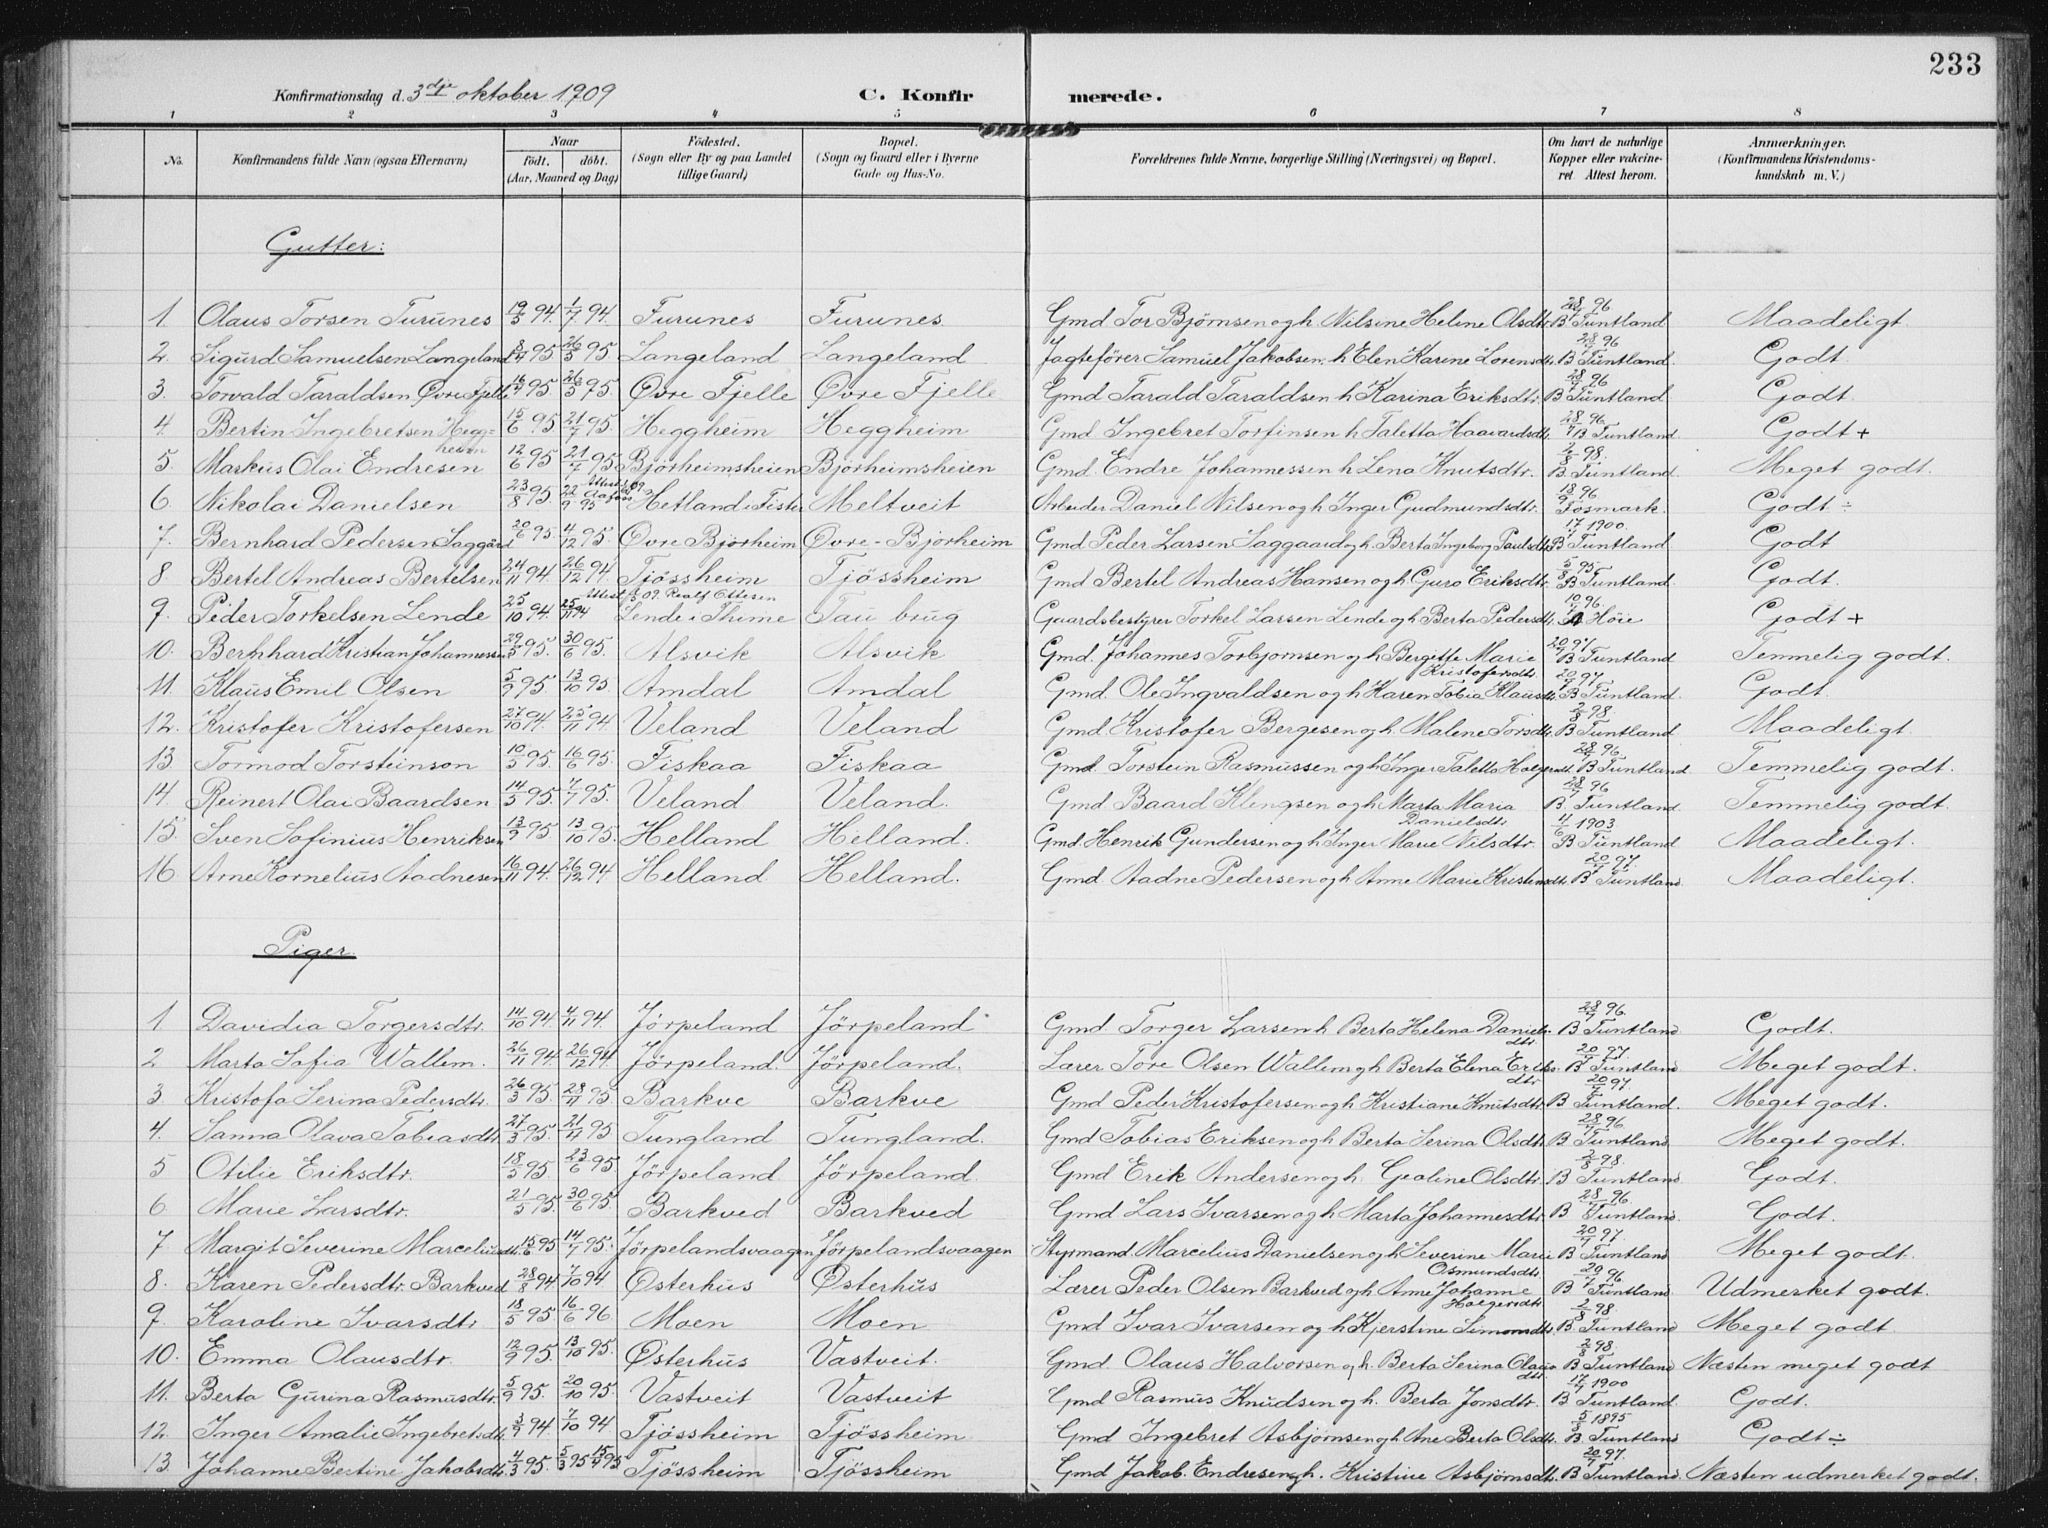 233
Konfirmationsdag d. 3dje oktober 1909 C. Konfirmerede.
1 2 3 4 5 6 7 8
No. Konfirmandens fulde Navn (ogsaa Efternavn) Naar födt. döbt. (Aar, Maaned og Dag) Födested. (Sogn eller By og paa Landet tillige Gaard) Bopæl. (Sogn og Gaard eller i Byerne Gade og Hus-No. Forældrenes fulde Navne, borgerlige Stilling (Næringsvei) og Bopæl. Om havt de naturlige Kopper eller vakcineret Attest herom. Anmærkninger. (Konfirmandens Kristendomskundskab m. V.)
Gutter:
1. Olaus Torsen Furunes 19/5 94. 1/7 94. Furunes Furunes Gmd Tor Bjørnsen og h. Nilsine Helene Olsdtr. 28/7 96 B Tuntland Maadeligt.
2. Sigurd Samuelsen Langeland 8/4 95 26/5 95 Langeland Langeland Jagtefører Samuel Jakobsen. h Elen Karine Lorensdtr. 28/7 96 B Tuntland. Godt.
3. Torvald Taraldsen Øvre Fjelle 16/4 95 26/5 95. Øvre Fjelle Øvre Fjelle Gmd Tarald Taraldsen h Karina Eriksdtr. 28/7 96 B Tuntland Godt.
4. Bertin Ingebretsen Heggheim 15/6 95 21/7 95. Heggheim Heggheim Gmd. Ingebret Torfinsen h Taletta Haavardsdtr. 28/7 96 B Tuntland. Godt +
5. Markus Olai Endresen 12/6 95 21/7 95 Bjørheimsheien Bjørheimsheien Gmd. Endre Johannessen h Lena Knutsdtr. 2/8 98. B. Tuntland. Meget godt.
6 Nikolai Danielsen 23/8 95. 22/9 95 Hetland i Fister Meltveit Arbeider Daniel Nilsen og h Inger Gudmundsdtr. 18/9 96 Fosmark. Godt ÷
7. Bernhard Pedersen Saggård 20/6 95 4/12 95. Øvre Bjørheim Øvre-Bjorheim Gmd Peder Larsen Saggaard og h. Berta Ingeborg Paulsdtr. 17/7 1900. B Tuntland Godt
8. Bertel Andreas Bertelsen 24/11 94. 26/12 94. Tjössheim Tjössheim Gmd Bertel Andreas Hansen og h Guro Eriksdtr. 5/8 95. B Tuntland. Godt.
9. Peder Torkelsen Lende 25/10 94. 25/11 94 Lende i Thime Tau brug Gaardsbestyrer Torkel Larsen Lende og h Berta Pedersdtr. 10/7 96. Höie Godt +
10. Bernhard Kristian Johannessen 29/5 95. 30/6 95. Alsvik Alsvik Gmd. Johannes Torbjørnsen og h Bergitte Marie Kristofersdtr. 20/7 97 B Tuntland Temmelig godt.
11. Klaus Emil Olsen 5/9 95. 13/10 95. Amdal Amdal Gmd. Ole Ingvaldsen og h Karen Tobia Klausdtr. 20/7 97 B Tuntland. Godt.
12. Kristofer Kristofersen 27/10 94. 25/11 94 Veland Veland Gmd. Kristofer Bergesen og h. Malene Torsdtr. 2/8 98 B Tuntland Maadeligt.
13 Tormod Torsteinson 10/5 95. 16/6 95. Fiskaa Fiskaa Gmd. Torstein Rasmussen og h Inger Taletta Holgersdt. 28/7 96 B Tuntland Temmelig godt.
14. Reinert Olai Baardsen 14/5 95. 7/7 95. Veland Veland. Gmd Baard Klengsen og h Marta Maria Danielsdtr 28/7 96 B. Tuntland. Temmelig godt.
15. Sven Sofinius Henriksen 13/9 95 13/10 95. Helland Helland. Gmd. Henrik Gundersen og h Inger Marie Nilsdtr. 4/6 1903 B Tuntland Maadeligt.
16. Arne Kornelius Aadnesen 16/11 94. 26/12 94 Helland Helland. Gmd. Aadne Pedersen og h Anne Marie Kristensdtr. 20/7 97. B Tuntland. Maadeligt.
Piger.
1. Davidia Torgersdtr. 14/10 94. 4/11 94. Jörpeland Jörpeland Gmd. Torger Larsen h Berta Helena Danielsdtr 28/7 96. B Tuntland Godt.
2. Marta Sofia Wallem. 26/11 94 26/12 94. Jörpeland. Jörpeland. Lærer Tore Olsen Wallem og h Berta Elena Eriksdtr. 20/7 97. B Tuntland. Meget godt.
3. Kristofa Serina Pedersdtr. 26/3 95. 28/4 95. Barkve Barkve Gmd Peder Kristofersen og h Kristiane Knutsdtr. 20/7 97. B Tuntland. Meget godt.
4. Sanna Olava Tobiasdtr 27/3 95. 21/4 95 Tungland Tungland. Gmd Tobias Eriksen og h Berta Serina Olsdtr. 28/7 96 B Tuntland. Meget godt.
5 Otilie Eriksdtr. 18/5 95. 23/6 95. Jörpeland. Jörpeland. Gmd Erik Andersen og h. Gealine Olsdtr. 2/8 98. B Tuntland Godt.
6. Marie Larsdtr. 21/5 95. 30/6 95 Barkved Barkved Gmd Lars Ivarsen og h Marta Johannesdtr. 28/7 96 B Tuntland. Godt.
7 Margit Severine Marceliusdtr. 15/6 95 14/7 95. Jörpelandsvaagen Jörpelandsvaagen Styrmand. Marcelius Danielsen og h Severine Marie Osmundsdtr. 20/7 97. B Tuntland Meget godt.
8. Karen Pedersdtr. Barkved 28/8 94 7/10 94 Østerhus Østerhus Lærer Peder Olsen Barkved og h Anne Johanne Holgersdtr 20/7 96. B Tuntland. Udmerket godt.
9. Karoline Ivarsdtr 18/5 95. 16/6 96. Moen Moen Gmd Ivar Ivarsen og h Kjerstine Simonsdtr. 2/8 98 B Tuntland Meget godt.
10. Emma Olausdtr. 12/9 95. 13/10 95. Østerhus Vastveit. Gmd. Olaus Halvorsen og h. Berta Serina Olausdtr. 2/8 98. B Tuntland Næsten meget godt
11. Berta Gurina Rasmusdtr. 5/9 95. 20/10 95. Vastveit Vastveit Gmd Rasmus Knudsen og h. Berta Jonsdtr. 17/7 1900 B Tuntland. Godt.
12. Inger Amalie Ingebretsdtr. 3/9 94. 7/10 94 Tjössheim Tjössheim. Gmd Ingebret Asbjørnsen og h Ane Berta Olsdtr. 5/8 1895 B. Tuntland Godt ÷
13. Johanne Bertine Jakobsdtr. 4/3 95. 5/3 95 15/4 95 Tjössheim Tjössheim Gmd Jakob. Endresen og h. Kristine Asbjørnsdtr. 20/7 97. B Tuntland. Næsten udmerket godt.